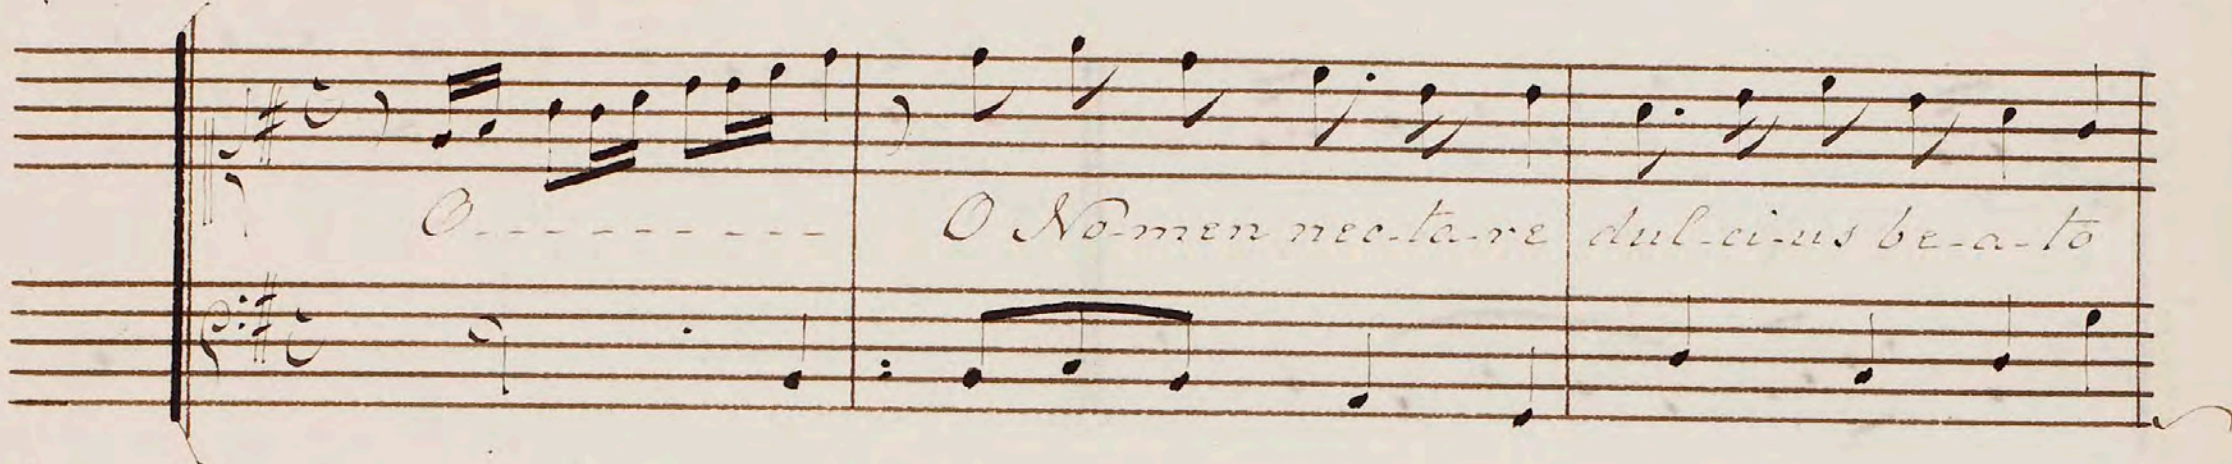 O - - - - - - - - - O No-men nec-ta-re dul-ci-us be-a-to